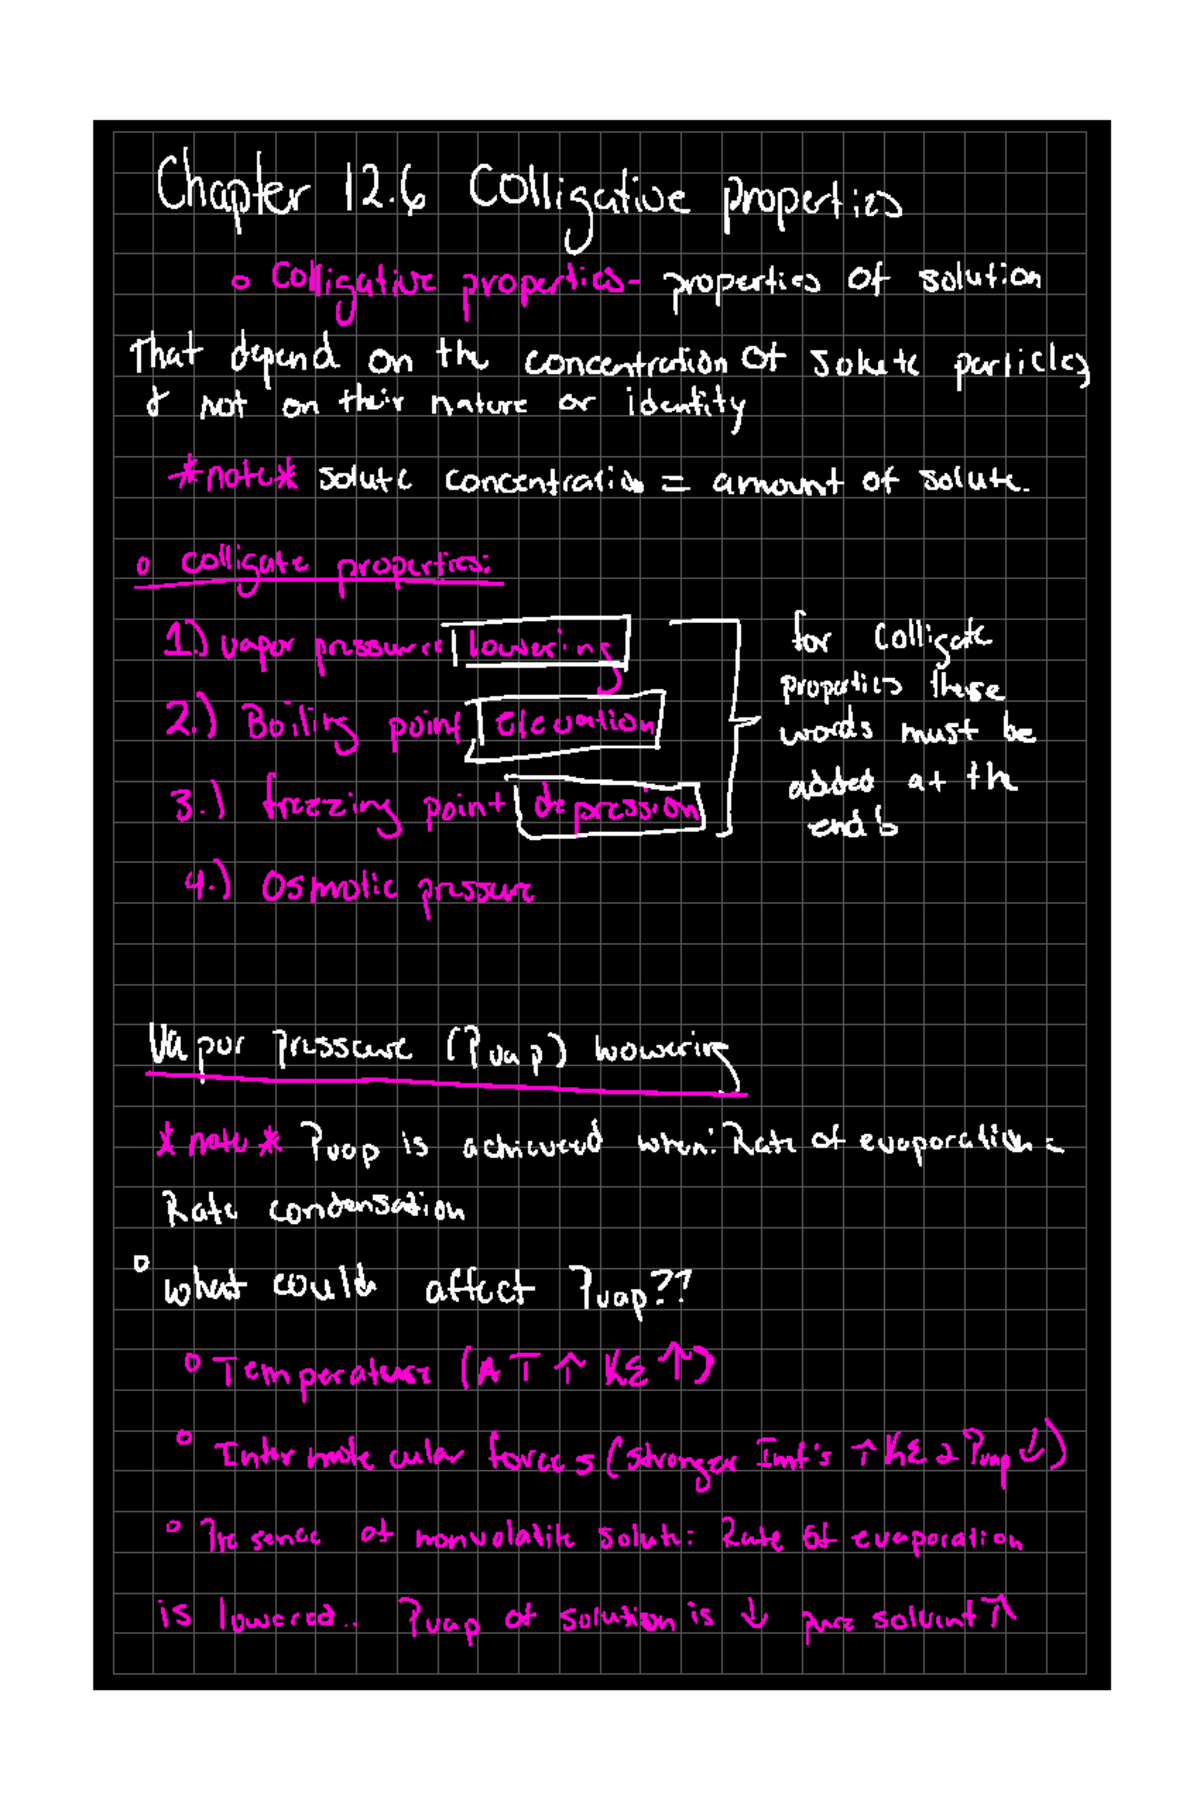 Chapter 12.6 Colligative properties
o Colligative properties- properties of solution
That depend on the concentration of solute particles
& not on their nature or identity
*note* solute concentration = amount of solute.
o colligate properties:
1.) vapor pressure lowering
2.) Boiling point elevation
3.) freezing point depression
4.) Osmotic pressure
for colligate
properties these
words must be
added at the
end
Vapor Pressure (Pvap) lowering
*note* Pvap is achieved when: Rate of evaporation =
Rate condensation
o what could affect Pvap??
o Temperature ( T ↑ KE ↑)
o Intermolecular forces (stronger Imf's ↑ KE & Pvap ↓)
o Presence of nonvolatile solute: Rate of evaporation
is lowered.. Pvap of solution is ↓ pure solvent ↑